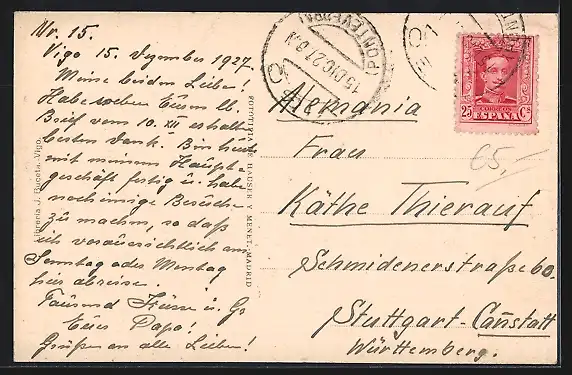 Nr. 15.
Vigo 15. Dezember 1927.
Meine beiden Lieben!
Habe soeben Euern lb.
Brief vom 10. XII erhalten
besten Dank. Bin heute
mit meinem Haupt-
geschäft fertig u. habe
noch einige Besuche
zu machen, so daß
ich voraussichtlich am
Sonntag oder Montag
hier abreise.
Tausend Küsse u. Gr
Euer Papa!
Grüße an alle Lieben!
Librería J. Buceta.-Vigo.
FOTOTIPIA DE HAUSER Y MENET.-MADRID
(PONTEVEDRA)
15 DIC 27
CORREOS
25 Cs
ESPAÑA
65,-
Alemania
Frau
Käthe Thierauf
Schmidenerstraße 60.
Stuttgart-Cannstatt
Württemberg.